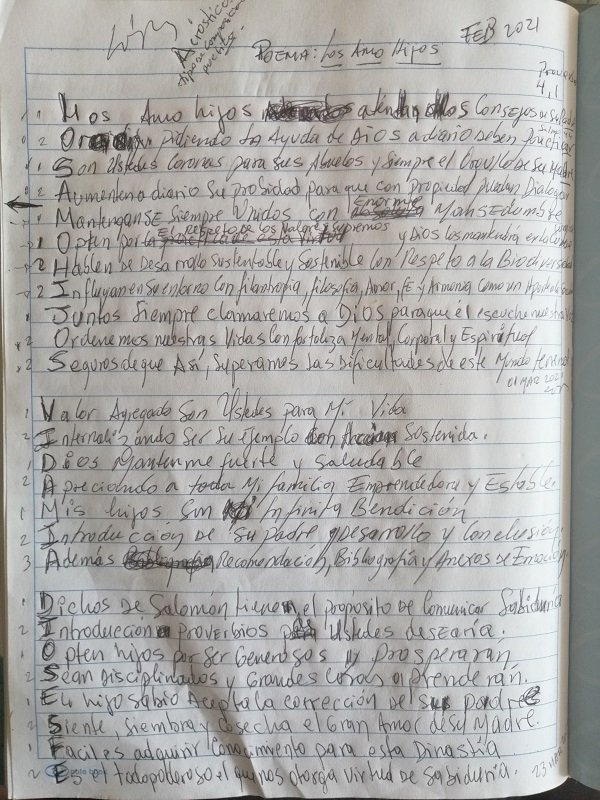 Acróstico
FEB 2021
POEMA: Los Amo Hijos
4,1
Los Amo hijos atentan los Consejos de su Padre
Oren pidiendo la Ayuda de Dios a diario deben practicar
Son Ustedes Coronas para sus Abuelos y siempre el Orgullo de su Madre
Aumenten a diario Su probidad para que con propiedad puedan Dialogar
Mantenganse Siempre Unidos con Enorme Mansedumbre
Opten por El Respeto de los Valores Supremos y Dios los mantendrá en la
Hablen de Desarrollo Sustentable y Sostenible con Respeto a la Biodiversidad
Influyan en su entorno con filantropia, filosofía, Amor, fE y Armonia como un Aporte
Juntos Siempre clamaremos a DIOS para que él escuche nuestra
Ordenemos nuestras Vidas con fortaleza Mental, Corporal y Espiritual
Seguros de que Así, Superamos las Dificultades de este Mundo terrenal
01 MAR 2021
Valor Agregado Son Ustedes para Mi Vida
Internalizando Ser Su Ejemplo con Acción Sostenida.
Dios Mantenme fuerte y Saludable
Apreciando a toda Mi familia Emprendedora y Estable.
Mis hijos Son Infinita Bendición
Introducción de Su padre, Desarrollo y Conclusión,
Además Recomendación, Bibliografía y Anexos de Emoción
Dichos de Salomón tienen el propósito de Comunicar Sabiduría
Introducción a proverbios para Ustedes desearía.
Opten hijos por ser Generosos y prosperarán
Sean Disciplinados y Grandes Cosas aprenderán.
El hijo sabio Acepta la corrección de su padre
Siente, Siembra y Cosecha el Gran Amor de su Madre.
Facil es adquirir Conocimiento para esta Dinastía
Es el todopoderoso el que nos otorga virtud de Sabiduria.